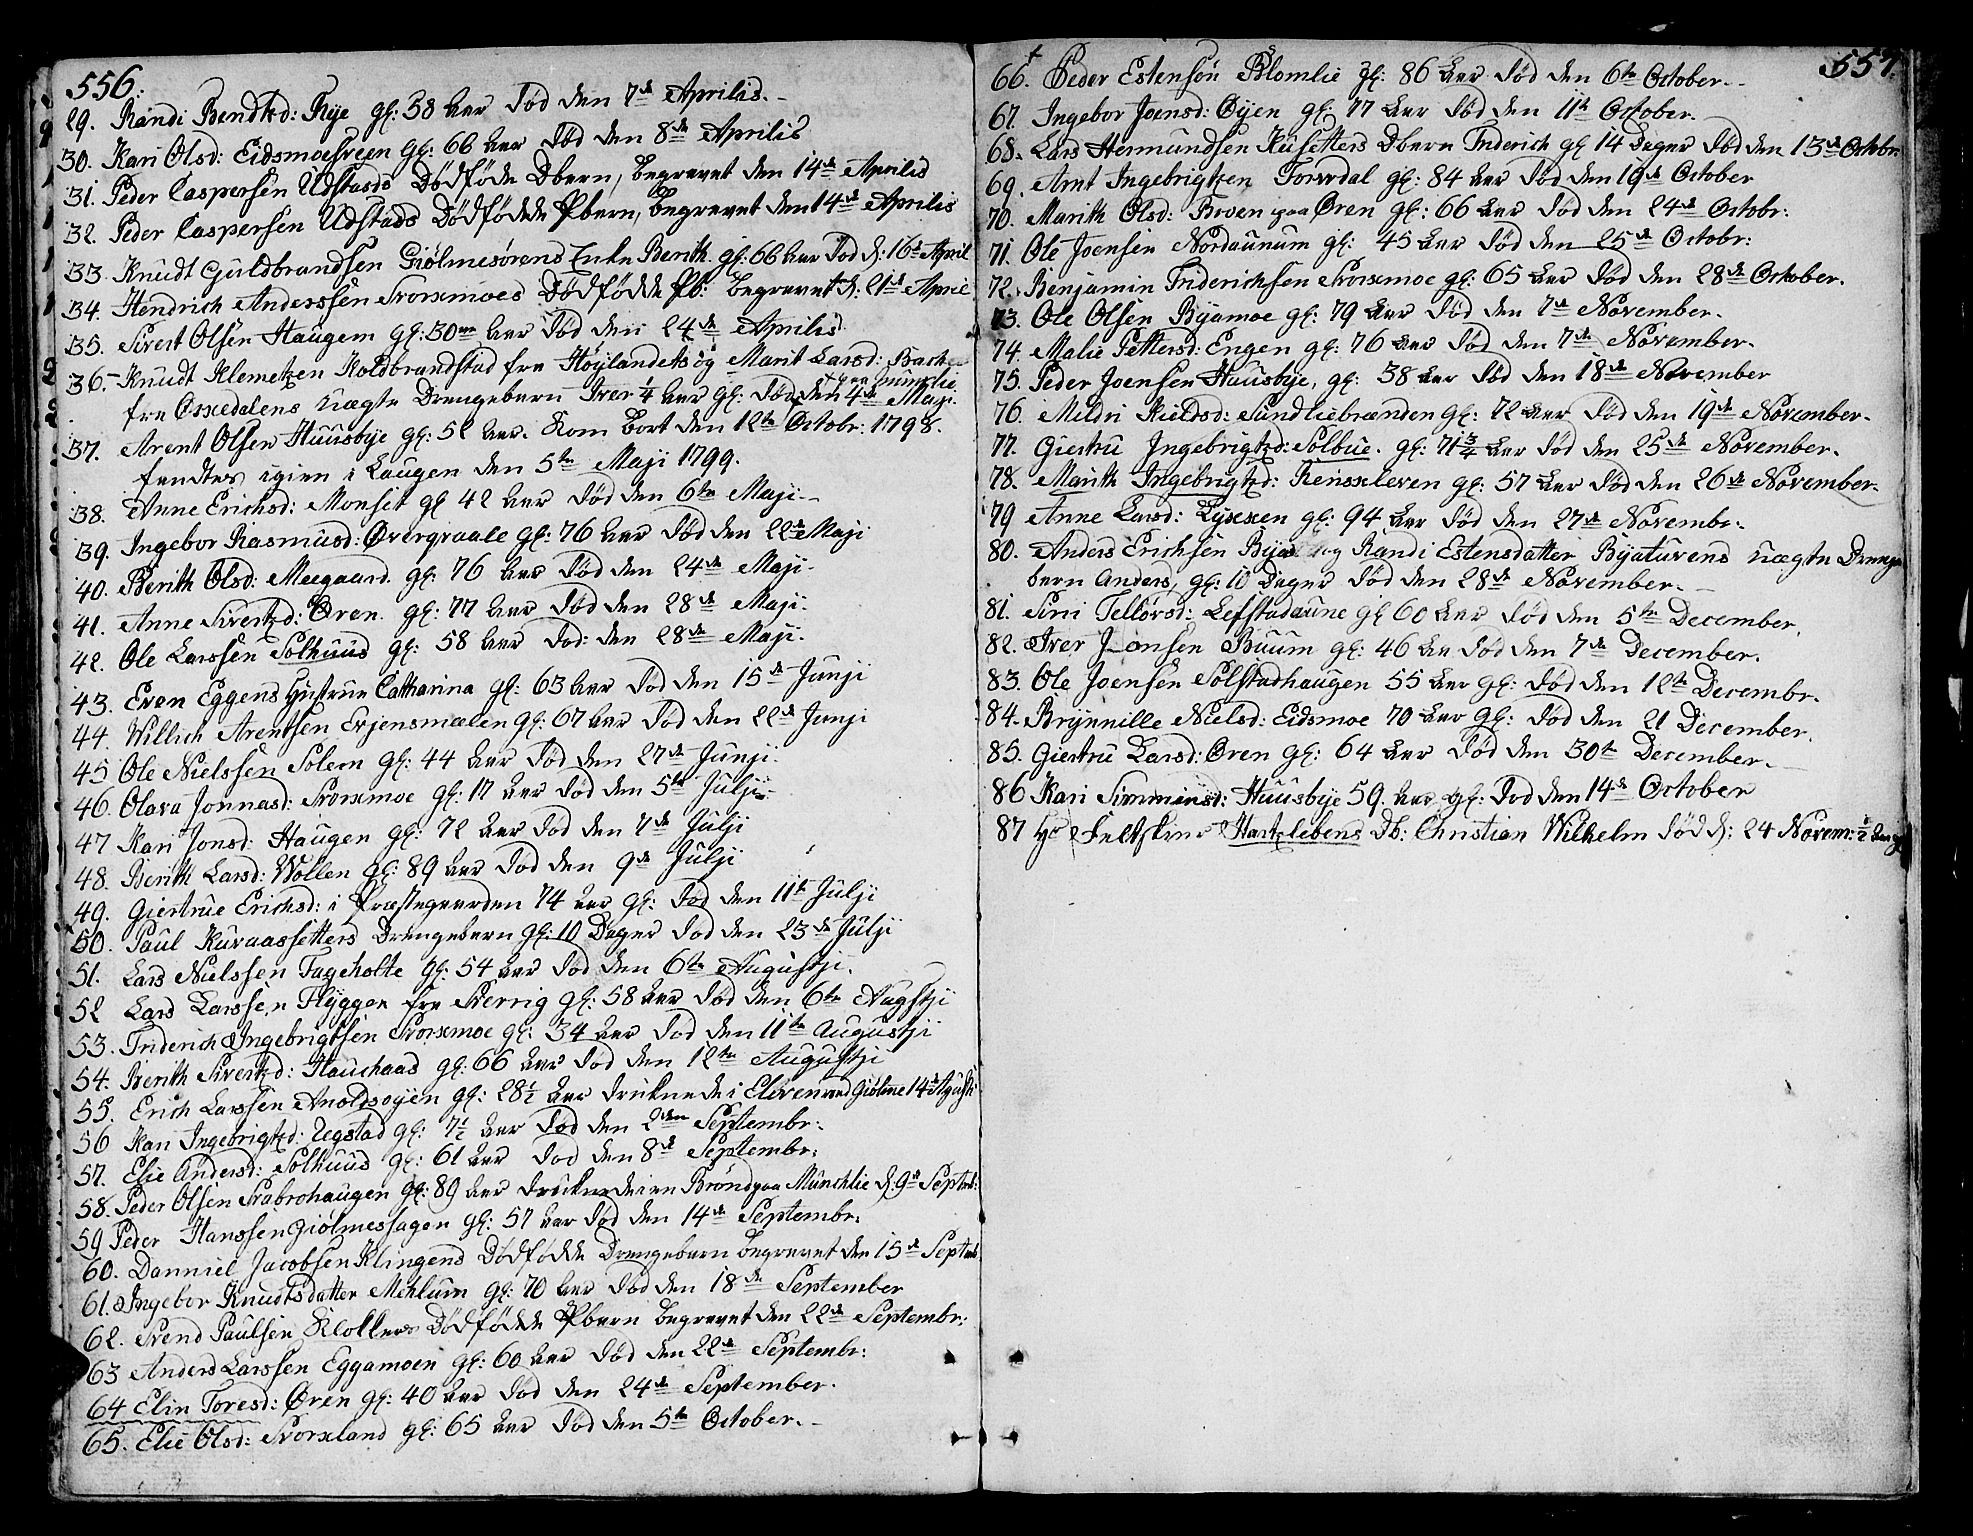 556.
29. Randi Bendtzd: Rye gl: 58 Aar Død den 7de Aprilis.
30. Kari Olsd: Eidsmoesveen gl: 66 Aar Død den 8de Aprilis
31. Peder Caspersen Udstads Dødføde Dbarn, begravet den 14de Aprilis
32. Peder Caspersen Udstads Dødfødde Pbarn, begravet den 14de Aprilis
33. Knudt Guldbrandsen Giølmesørens Enke Berith. gl: 66 Aar Død d: 16de April
34. Hendrich Anderssen Storxmoes Dødfødde Pb: begravet d: 21de April
35. Sivert Olsen Haugem gl: 30 Aar Død den 24de Aprilis
36. Knudt Klemetzen Koldbrandstad fra Høylandet og Marit Larsd:
fra Oxedalens uægte Drengebarn Iver 1/4 Aar gl: Død den 4de Maji.
37. Arent Olsen Huusbye gl: 52 Aar. Kom bort den 12te Octobr: 1798.
fandtes igien i Laugen den 5te Maji 1799.
38. Anne Erichsd: Monset gl 42 Aar Død den 6te Maji
39. Ingebor Rasmusd: Øvergraale gl: 76 Aar Død den 22de Maji
40. Berith Olsd: Meegaard gl: 76 Aar Død den 24de Maji
41. Anne Sivertzd: Øren. gl: 77 Aar Død den 28de Maji.
42. Ole Larssen Solhuus gl: 58 Aar Død: den 28de Maji.
43. Even Eggens Hustrue Catharina gl: 63 Aar Død den 15de Junji
44. Willich Arentsen Evjensmælen gl: 67 Aar Død den 22de Junji
45 Ole Nielssen Solem gl: 44 Aar Død den 27de Junji.
46. Olava Jonnasd: Storxmoe gl: 17 Aar Død den 5te Julji
47 Kari Jonsd: Haugen gl: 72 Aar Død den 7de Julji
48. Berith Larsd: Wollen gl: 89 Aar Død den 9de Julji
49. Giertrue Erichsd: i Præstegaarden 74 Aar gl: Død den 11te Julji
50. Paul Kuraassetters Drengebarn gl: 10 Dager Død den 23de Julji
51. Lars Nielssen Fageholte gl: 54 Aar Død den 6te Augustji.
52 Lars Larssen Flyggen fra Sverrig gl: 58 Aar Død den 6te Augstji
53. Friderich Ingebrigtsen Storxmoe gl: 34 Aar Død den 11te Augustji
54. Berith Sivertzd: Houchaas gl: 66 Aar Død den 12te Augustji
55. Erich Larssen Anoldsøyen gl: 28 1/2 Aar druknede i Elven ved Giølme 14de Agusti
56 Kari Ingebrigtzd: Uegstad gl: 7 1/2 Aar Død den 2den Septembr:
57. Elie Andersd: Solhuus gl: 61 Aar Død den 8de Septembr:
58. Peder Olsen Skabrohaugen gl: 89 Aar druknede i en Brønd paa Munchlie d: 9de Septembr:
59 Peder Hanssen Giolmeshagen gl: 57 Aar Død den 14de Septembr:
60. Danniel Jacobsen Klingens Dødfødde Drengebarn begravet den 15de Septembr
61. Ingebor Knudtsdatter Mehlum gl: 70 Aar Død den 18de September
62. Svend Paulsen Kloklles Dødfødde Pbarn begravet den 22de Septembr:
63 Anders Larssen Eggamoen gl: 60 Aar Død den 22de Septembr:
64 Elin Toresd: Øren gl: 40 Aar Død den 24de September.
65. Elie Olsd: Storxland gl: 65 Aar Død den 5te October.
557.
66. Peder Estensøn Blomlie gl: 86 Aar Død den 6te October.
67. Ingebor Joensd: Øyen gl: 77 Aar Død den 11te October.
68. Lars Hermundsen Kusetters Dbarn Friderich gl 14 Dager Død den 13de Octobr:
69. Arnt Ingebrigtzen Forvdal gl: 84 Aar Død den 19de October
70. Marith Olsd: Boven paa Øren gl: 66 Aar Død den 24de Octobr:
71. Ole Joensen Nordaunum gl: 45 Aar Død den 25de Octobr:
72. Benjamin Friderichsen Storxmoe gl: 65 Aar Død den 28de October.
73. Ole Olsen Byamoe gl: 79 Aar Død den 7de November.
74. Malie Pettersd: Engen gl: 76 Aar Død den 7de November.
75. Peder Joensen Huusbye, gl: 38 Aar Død den 18de November
76. Mildri Kieldsd: Sundliebrænden gl: 72 Aar Død den 19de November.
77. Giertru Ingebrigtzd: Solbue. gl: 71 3/4 Aar Død den 25de November.
78. Marith Ingebrigtzd: Rensxleven gl: 57 Aar Død den 26de November.
79 Anne Larsd: Lyxxen gl: 94 Aar Død den 27de Novembr.
80. Anders Erichsen og Randi Estensdatter Byaturens uægte Drenge
barn Anders, gl: 10 Dager Død den 28de November.
81. Siri Tellofsd: Lefstadaune gl 60 Aar Død den 5te December.
82. Iver Jonsen Buum gl: 46 Aar Død den 7de December.
83. Ole Joensen Solstadhaugen 55 Aar gl: Død den 12te Decembr.
84. Brynnille Nielsd: Eidsmoe 70 Aar gl: Død den 21 December.
85. Giertru Larsd: Øren gl: 64 Aar Død den 30te December.
86 Kari Simmensd: Huusbye 59. Aar gl: Død den 14de October
87 Hr Feltskier Hartzlebens Db: Christian Wilhelm Død d: 24 Novem: 1/2 Aar gl